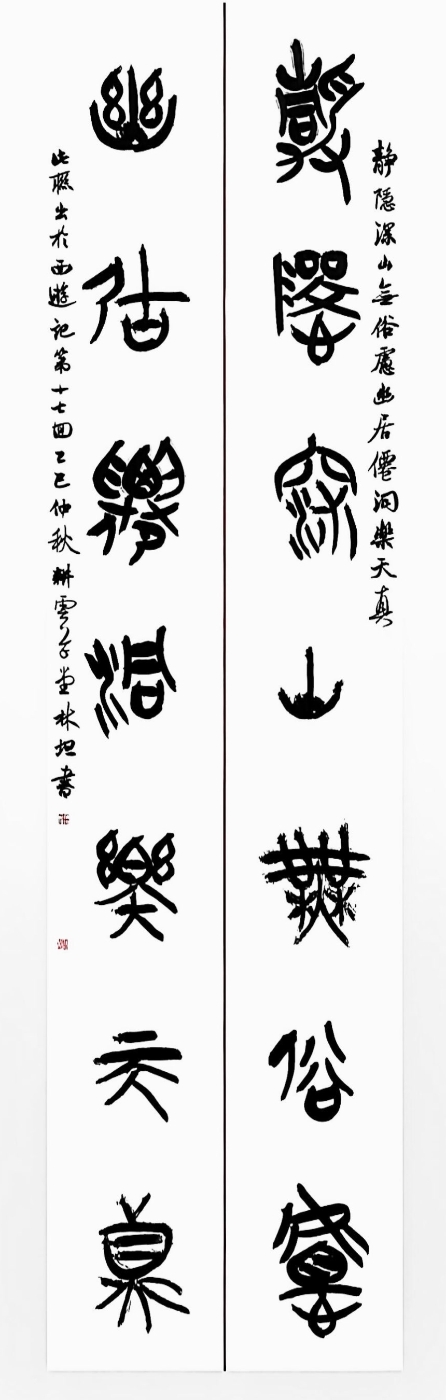 靜隱深山無俗慮幽居僊洞樂天真
靜隱深山無俗慮
幽居僊洞樂天真
此聯出於西遊記第十七回乙巳仲秋耕雲子堂林坦書